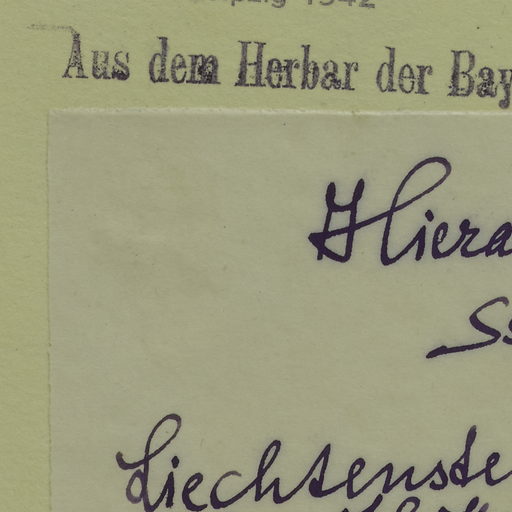 1942
Aus dem Herbar der Bay
Hiera
Ss
Liechtenste